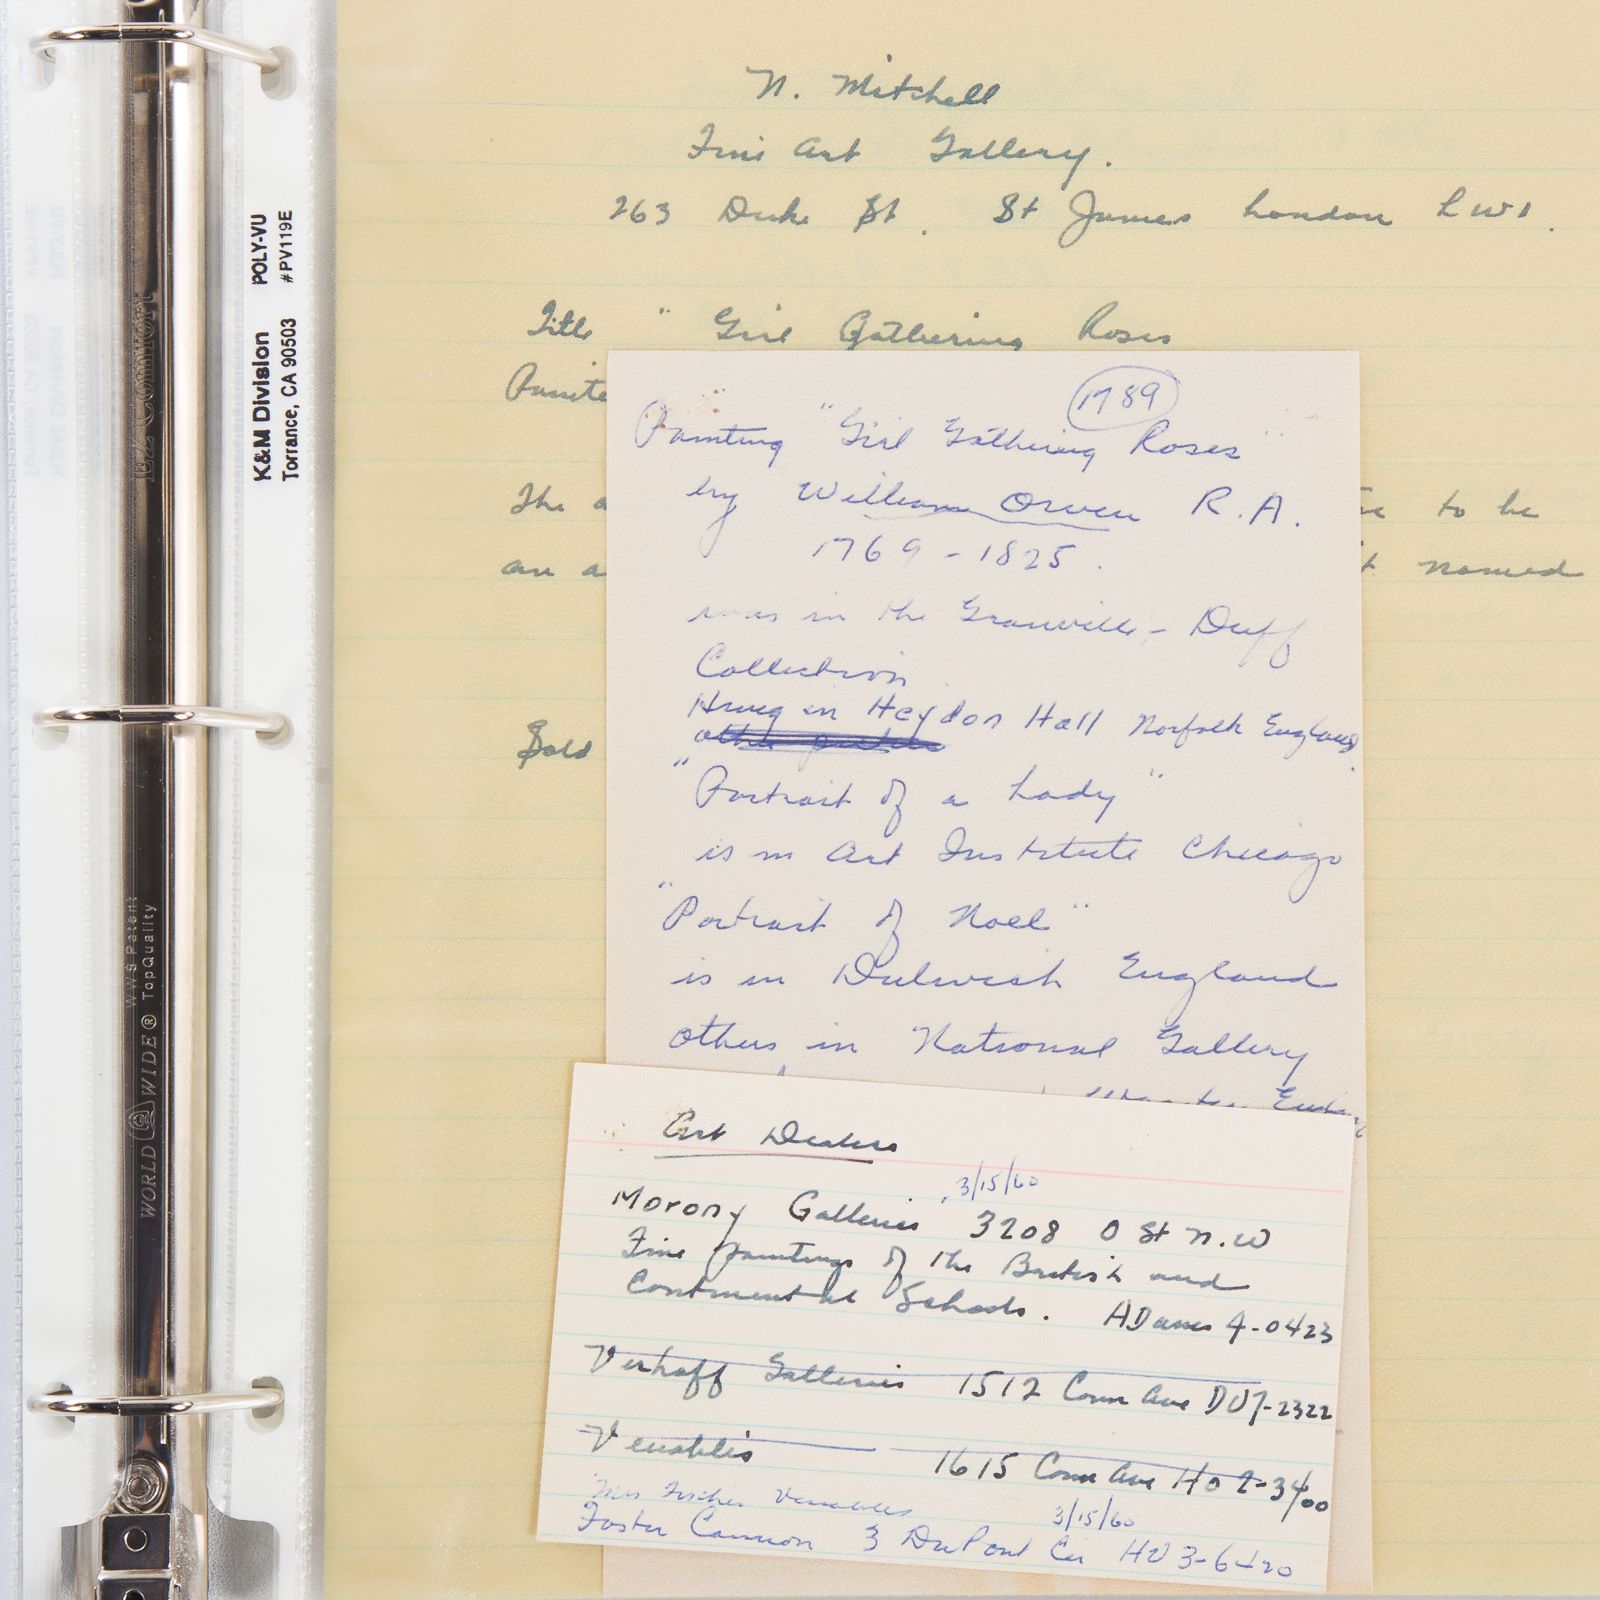 N. Mitchell
Fine Art Gallery.
263 Duke St. St James London SW1.
Title " Girl Gathering Roses
Painte
The a
to be
an a
named
Sold
1789
Painting "Girl Gathering Roses"
by William Owen R.A.
1769 - 1825.
was in the Granville - Duff
Collection
Hung in Heydon Hall Norfolk England
"Portrait of a Lady"
is in Art Institute Chicago
"Portrait of Noel"
is in Dulwich England
others in National Gallery
Art Dealers
3/15/60
Morony Galleries 3208 O St N.W
Fine paintings of the British and
Continental Schools. ADams 4-0423
Verhoff Galleries 1512 Conn Ave DU7-2322
Venables 1615 Conn Ave HO 2-3400
Mrs Fischer Venables
3/15/60
Foster Cannon 3 DuPont Cir HU 3-6420
K&M Division POLY-VU
Torrance, CA 90503 #PV119E
EZ Comfort
WWS Patent
WORLD WIDE® TopQuality